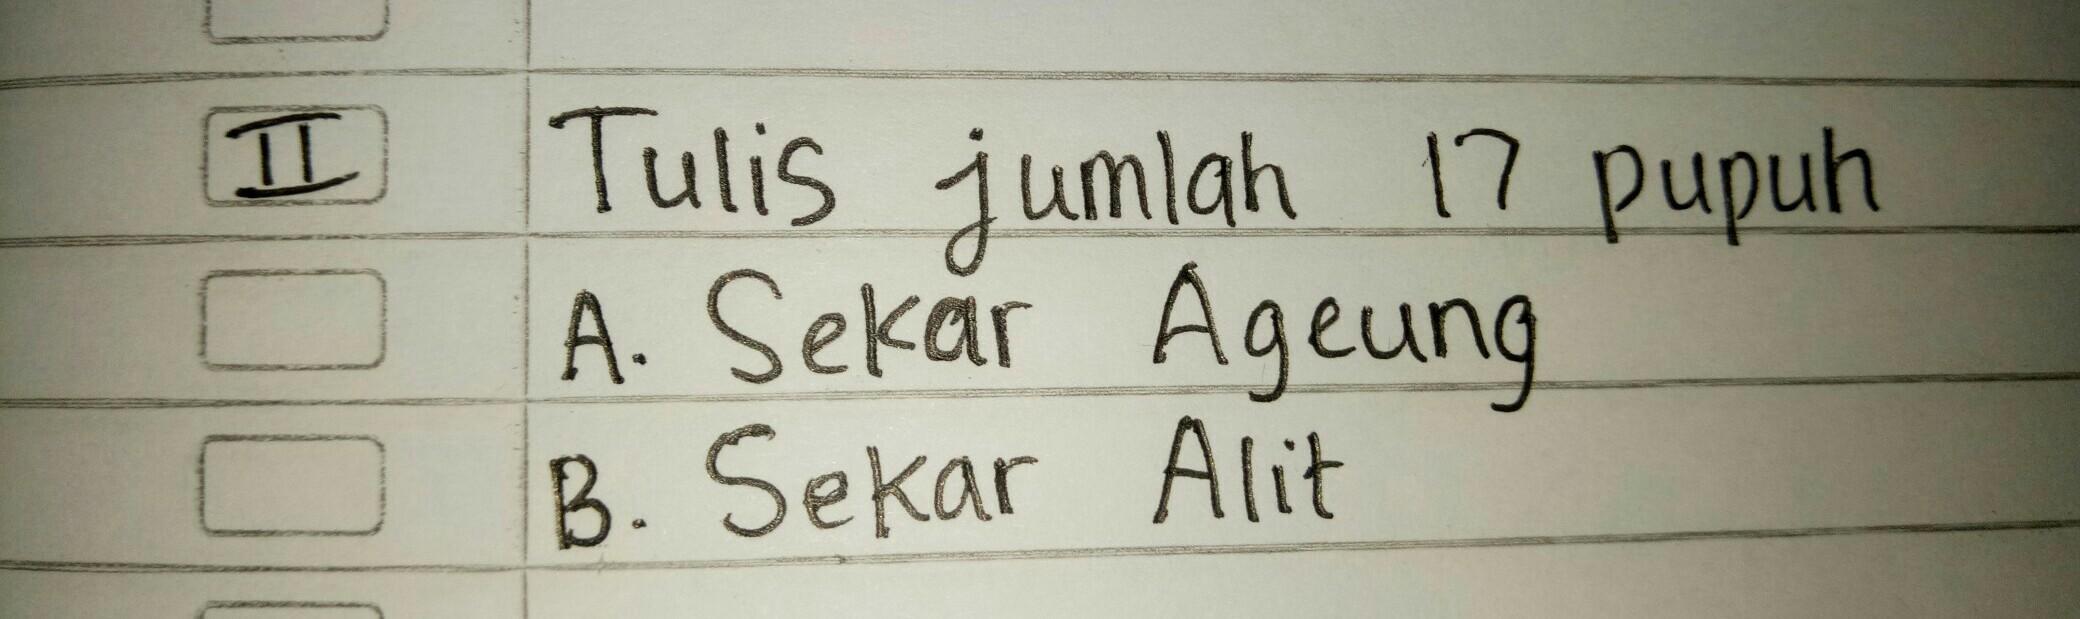 II Tulis jumlah 17 pupuh
A. Sekar Ageung
B. Sekar Alit